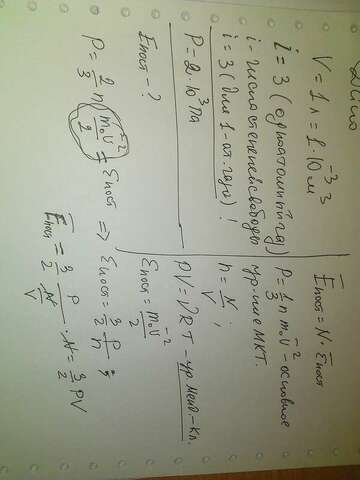 Дано
V = 1 л = 1·10⁻³ м³
i = 3 (одноатомный газ)
i - число степеней свободы
i = 3 (для 1-ат. газа)!
P = 2·10³ Па
Eпост - ?
E̅пост = N · ε̅пост
P = 1/3 n m₀v̅² - основное
ур-ние МКТ.
n = N/V ;
PV = νRT - ур Менд. - Кл.
εпост = m₀v̅²/2
P = 2/3 n m₀v̅²/2 = εпост => εпост = 3/2 P/n ;
E̅пост = 3/2 P/(N/V) · N = 3/2 PV